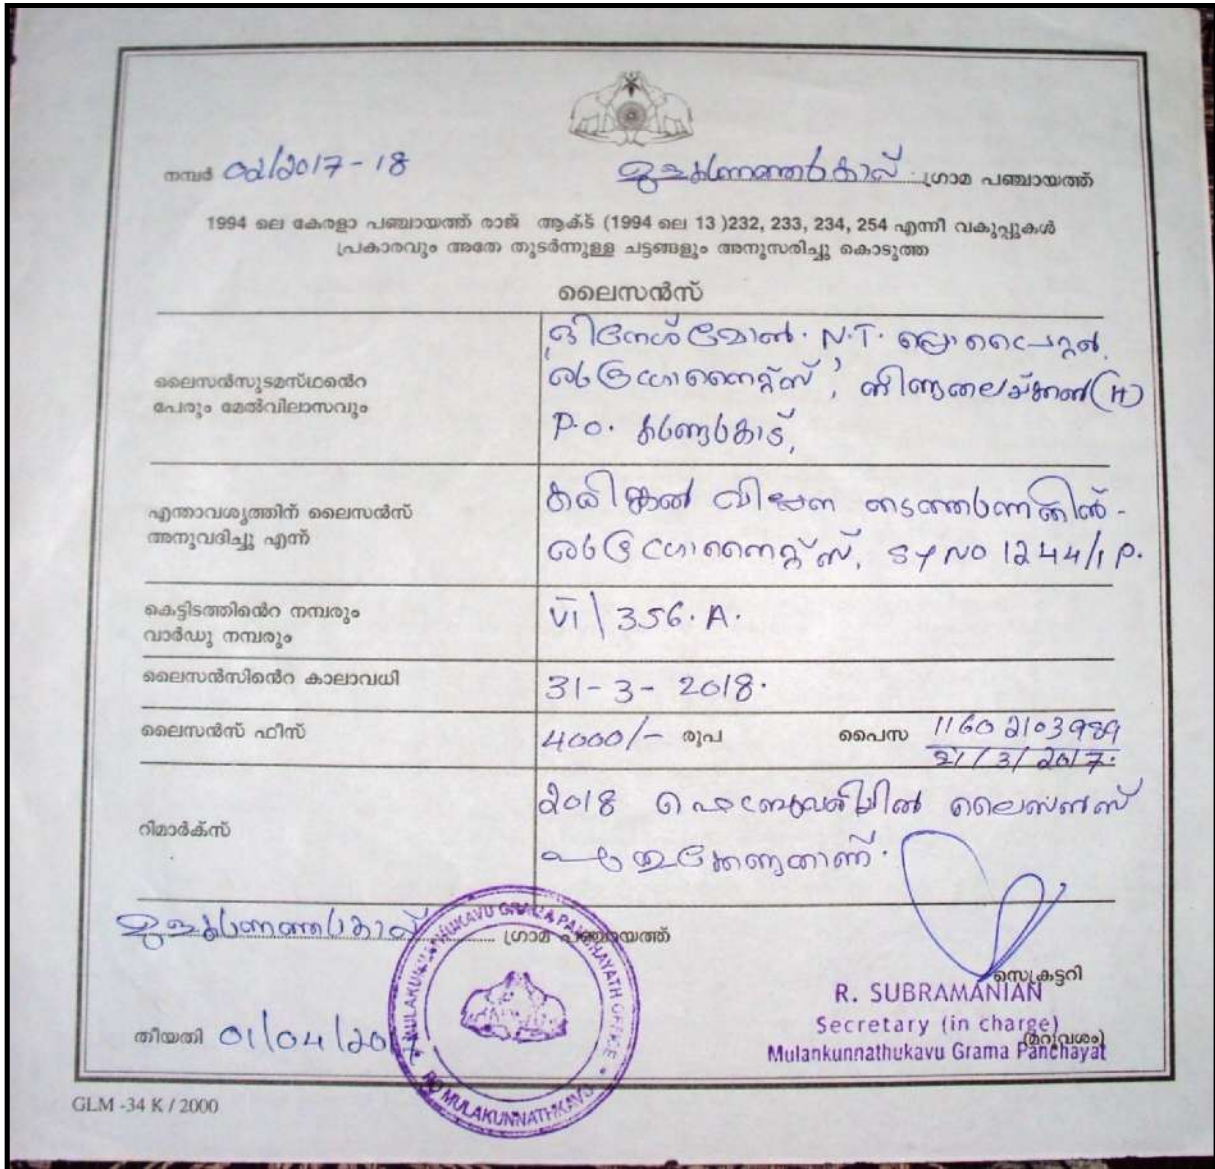 നമ്പർ 02/2017-18
മുളങ്കുന്നത്തുകാവ് ഗ്രാമ പഞ്ചായത്ത്
1994 ലെ കേരളാ പഞ്ചായത്ത് രാജ് ആക്ട് (1994 ലെ 13 )232, 233, 234, 254 എന്നീ വകുപ്പുകൾ
പ്രകാരവും അതേ തുടർന്നുള്ള ചട്ടങ്ങളും അനുസരിച്ചു കൊടുത്ത
ലൈസൻസ്
ലൈസൻസുടമസ്ഥൻെറ
പേരും മേൽവിലാസവും
N.T.
(H)
P.O.
എന്താവശ്യത്തിന് ലൈസൻസ്
അനുവദിച്ചു എന്ന്
കരിങ്കൽ
Sy No 1244/1 P.
കെട്ടിടത്തിൻെറ നമ്പരും
വാർഡു നമ്പരും
VI \ 356. A.
ലൈസൻസിൻെറ കാലാവധി
31-3-2018.
ലൈസൻസ് ഫീസ്
4000/- രൂപ പൈസ 11602103989
21/3/2017.
റിമാർക്സ്
2018 ഫെബ്രുവരിയിൽ ലൈസൻസ്
പുതുക്കേണ്ടതാണ്.
മുളങ്കുന്നത്തുകാവ് ഗ്രാമ പഞ്ചായത്ത്
MULAKUNNATHUKAVU GRAMA PANCHAYATH OFFICE
PO MULAKUNNATHKAVU
സെക്രട്ടറി
R. SUBRAMANIAN
Secretary (in charge)
(മറുവശം)
Mulankunnathukavu Grama Panchayat
തീയതി 01/04/201
GLM -34 K / 2000